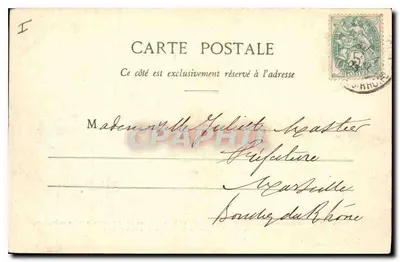 I
CARTE POSTALE
Ce côté est exclusivement réservé à l'adresse
Mademoiselle Juliette Mastier
Préfecture
Marseille
Bouches du Rhône